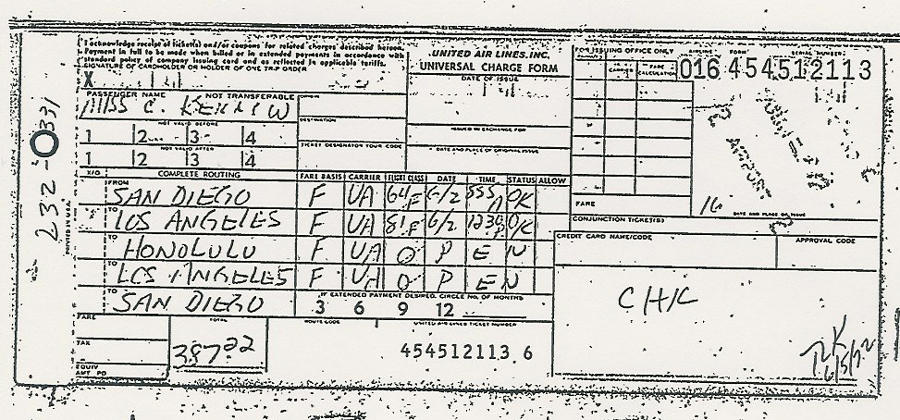 I acknowledge receipt of ticket(s) and/or coupons for related charges described hereon.
Payment in full to be made when billed or in extended payments in accordance with
standard policy of company issuing card and as reflected in applicable tariffs.
SIGNATURE OF CARDHOLDER OR HOLDER OF ONE TRIP ORDER
X
UNITED AIR LINES, INC.
UNIVERSAL CHARGE FORM
DATE OF ISSUE
FOR ISSUING OFFICE ONLY
FARE CALCULATION
FORM
SERIAL NUMBER
016 454512113
PASSENGER NAME NOT TRANSFERABLE
MISS C.
ORIGIN
DESTINATION
ISSUED IN EXCHANGE FOR
NOT VALID BEFORE
1 2 3 4
TICKET DESIGNATOR TOUR CODE
DATE AND PLACE OF ORIGINAL ISSUE
NOT VALID AFTER
1 2 3 4
X/O COMPLETE ROUTING FARE BASIS CARRIER FLIGHT CLASS DATE TIME STATUS ALLOW
FROM SAN DIEGO F UA 6/2 OK
TO LOS ANGELES F UA 6/2 OK
TO HONOLULU F UA O P E N
TO LOS ANGELES F UA O P E N
TO SAN DIEGO
IF EXTENDED PAYMENT DESIRED, CIRCLE NO. OF MONTHS
3 6 9 12
FARE
DATE AND PLACE OF ISSUE
CONJUNCTION TICKET(S)
CREDIT CARD NAME/CODE
APPROVAL CODE
CHK
FARE
TAX
EQUIV
AMT PD
TOTAL
387.22
ROUTE CODE
UNITED AIR LINES TICKET NUMBER
454512113 6
232-0331